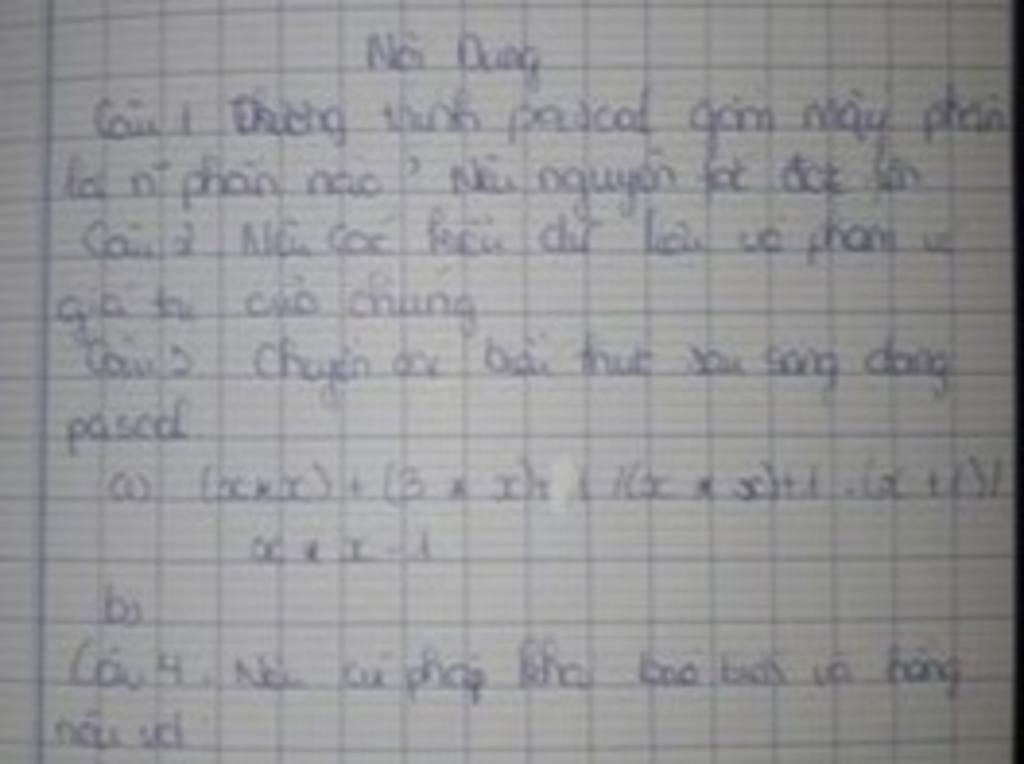 Nội Dung
Câu 1 Chương trình pascal gồm mấy phần
là n~ phần nào? Nêu nguyên tắc đặt tên
Câu 2 Nêu các kiểu dữ liệu và phạm vi
giá trị của chúng
Câu 3 Chuyển các biểu thức sau sang dạng
pascal
a) (x*x) + (3 * x) + 1 /(x * x)+1 - (x+1)/
x * x - 1
b)
Câu 4. Nêu cú pháp khai báo biến và hằng
nêu vd